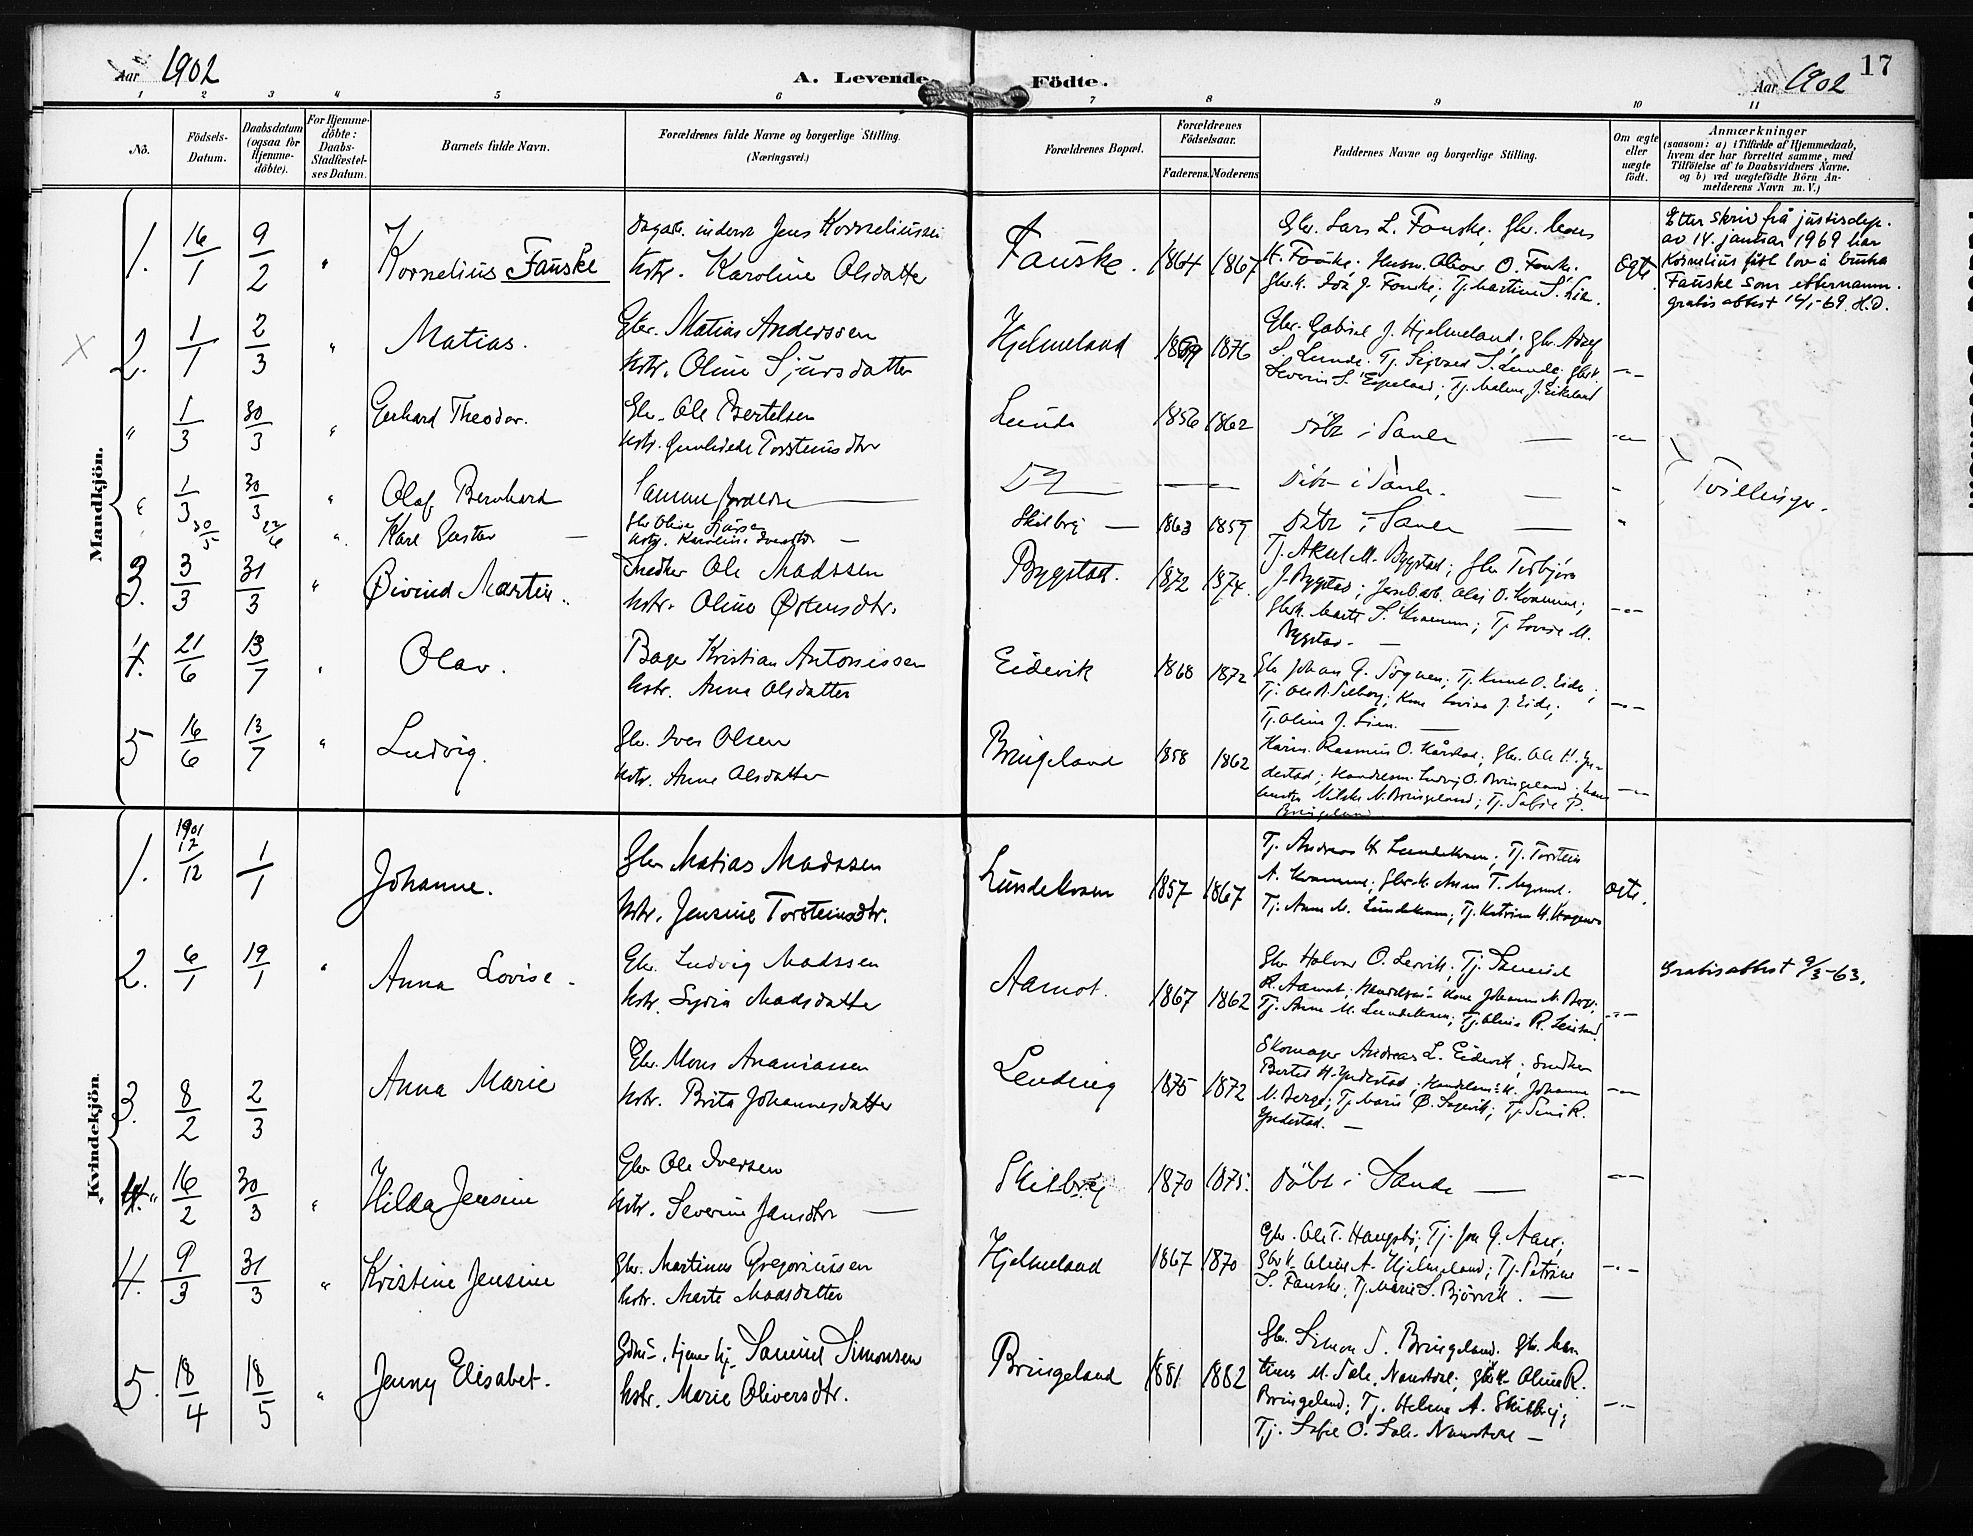 Aar 1902
A. Levende Födte.
Aar 1902
17
1 2 3 4 5 6 7 8 9 10 11
No.
Födsels-
Datum.
Daabsdatum
(ogsaa for
Hjemme-
döbte).
For Hjemme-
döbte:
Daabs-
Stadfæstel-
ses Datum.
Barnets fulde Navn.
Forældrenes fulde Navne og borgerlige Stilling.
(Næringsvei.)
Forældrenes Bopæl.
Forældrenes
Födselsaar.
Faderens. Moderens
Faddernes Navne og borgerlige Stilling.
Om ægte
eller
uægte
födt.
Anmærkninger
(saasom: a) i Tilfælde af Hjemmedaab,
hvem der har forrettet samme, med
Tilföielse af to Daabsvidners Navne.
og b) ved uægtefödte Börn An-
melderens Navn m. V.)
Mandkjön.
1. 16/1 9/2 " Kornelius Fauske
Jens Korneliussen
Kstr. Karoline Olsdatter
Fauske. 1864 1867
Gbr. Lars L. Fauske; Gbr. Mons
K. Fauske; Husm. Oliver O. Fauske.
Tj. Martine S. Lia.
Ogte
Etter skriv frå justisdep.
av 14. januar 1969 har
Kornelius fått lov å bruka
Fauske som etternamn.
gratis attest 16/1-69 H.D.
X 2. 1/1 2/3 " Matias.
Gbr. Matias Anderssen
Kstr. Oline Sjursdatter
Hjelmeland 1876
Gbr. Gabriel J. Hjelmeland; Gbr.
S. Lunde. Tj. Sigvard S. Lunde; Gbrk.
Severine S. Espeland; Tj. Malene J. Eikeland
" 1/3 30/3 " Gerhard Theodor.
Gbr. Ole Bertelsen
Kstr. Torsteinsdtr
Lunde 1856 1862 Döbt i Sande
" 1/3 30/3 " Olaf Bernhard
Samme forældre
Döbt i Sande.
Tvillinger.
30/5 22/6 " Karl Gustav
Gbr Oliver Sjursen
Kstr. Karoline Iversdtr
Skilbrej 1863 1859 Döbt i Sande "
3. 3/3 31/3 " Öivind Martin.
Smedker Ole Madssen
Kstr. Oline Östensdtr.
Bygstad. 1872 1874.
Tj. Aksel M. Bygstad; Gbr Torbjörn
J. Bygstad; Jernb.arb. Olai O. Kvamme;
Gbrk. Marte S. Kvamme; Tj. Lovise M.
Bygstad.
4. 21/6 13/7 " Olav.
Bager Kristian Antonissen
Kstr. Anna Olsdatter
Eidevik 1868 1872
Gbr Johan G. Sognen; Tj. Knut O. Eide;
Kone Lovise J. Eide;
Tj. Oline J. Lien.
5 16/6 13/7 " Ludvig.
Gbr. Iver Olsen
Kstr. Anne Olsdatter
Bringeland 1858 1862
Rasmus O. Kårstad; Gbr. Ole H. Yn-
destad; Handelsm. Ludvig O. Bringeland;
N. Bringeland; Tj. Sofie P.
Bringeland
Kvindekjön.
1. 1901 17/12 1/1 Johanne.
Gbr Matias Madssen
Kstr. Jensine Torsteinsdtr.
Lundekvam 1857 1867
Tj. Andreas H. Lundekvam; Tj. Torstein
A. Kvamme; Gbrk. Anne T.
Tj. Anne M. Lundekvam; Tj. Katrine
ogte.
2. 6/1 19/1 " Anna Lovise.
Gbr. Ludvig Madssen
Kstr. Syrin Madsdatter
Aamot. 1867 1862
Gbr Halvor O. Lervik; Tj. Samuel
R. Aamot; Kone Johanne N. Berge;
Tj. Anne M. Lundekvam; Tj. Olina R.
Gratisattest 9/3-63.
3. 8/2 2/3 Anna Marie
Gbr. Mons Ananiassen
Kstr. Brita Johannesdatter
Lending 1875 1872
Skomager Andreas L. Eidevik; Smedker
Bertel H. Yndestad; Handelsm.k. Johanne
N. Berge; Tj. Marie Ö. Sagevik; Tj. Sina R.
Yndestad.
4. " 16/2 30/3 " Hilda Jensine
Gbr Ole Iversen
Kstr. Severine Jansdtr
Skilbrej 1870 1875. Döbt i Sande
4. 9/3 31/3 " Kristine Jensine
Gbr. Martinus Gregoriussen
Kstr. Marte Madsdatter
Hjelmeland 1867 1870
Gbr. Ole T. Haugsbö; Tj. Jon G. Aase;
Gbrk. Oline A. Hjelmeland; Tj. Petrine
S. Fauske; Tj. Marie S. Björvik.
5. 18/4 18/5 " Jenny Elisabet.
Samuel Simonsen
Kstr. Marie Oliversdtr.
Bringeland 1881 1882
Gbr. Simon S. Bringeland. Gbr. Mar-
tinus M. Sale, Naustdal; Gbrk. Oline R.
Bringeland; Tj. Helene A. Skilbrej;
Tj. Sofie O. Sale. Naustdal